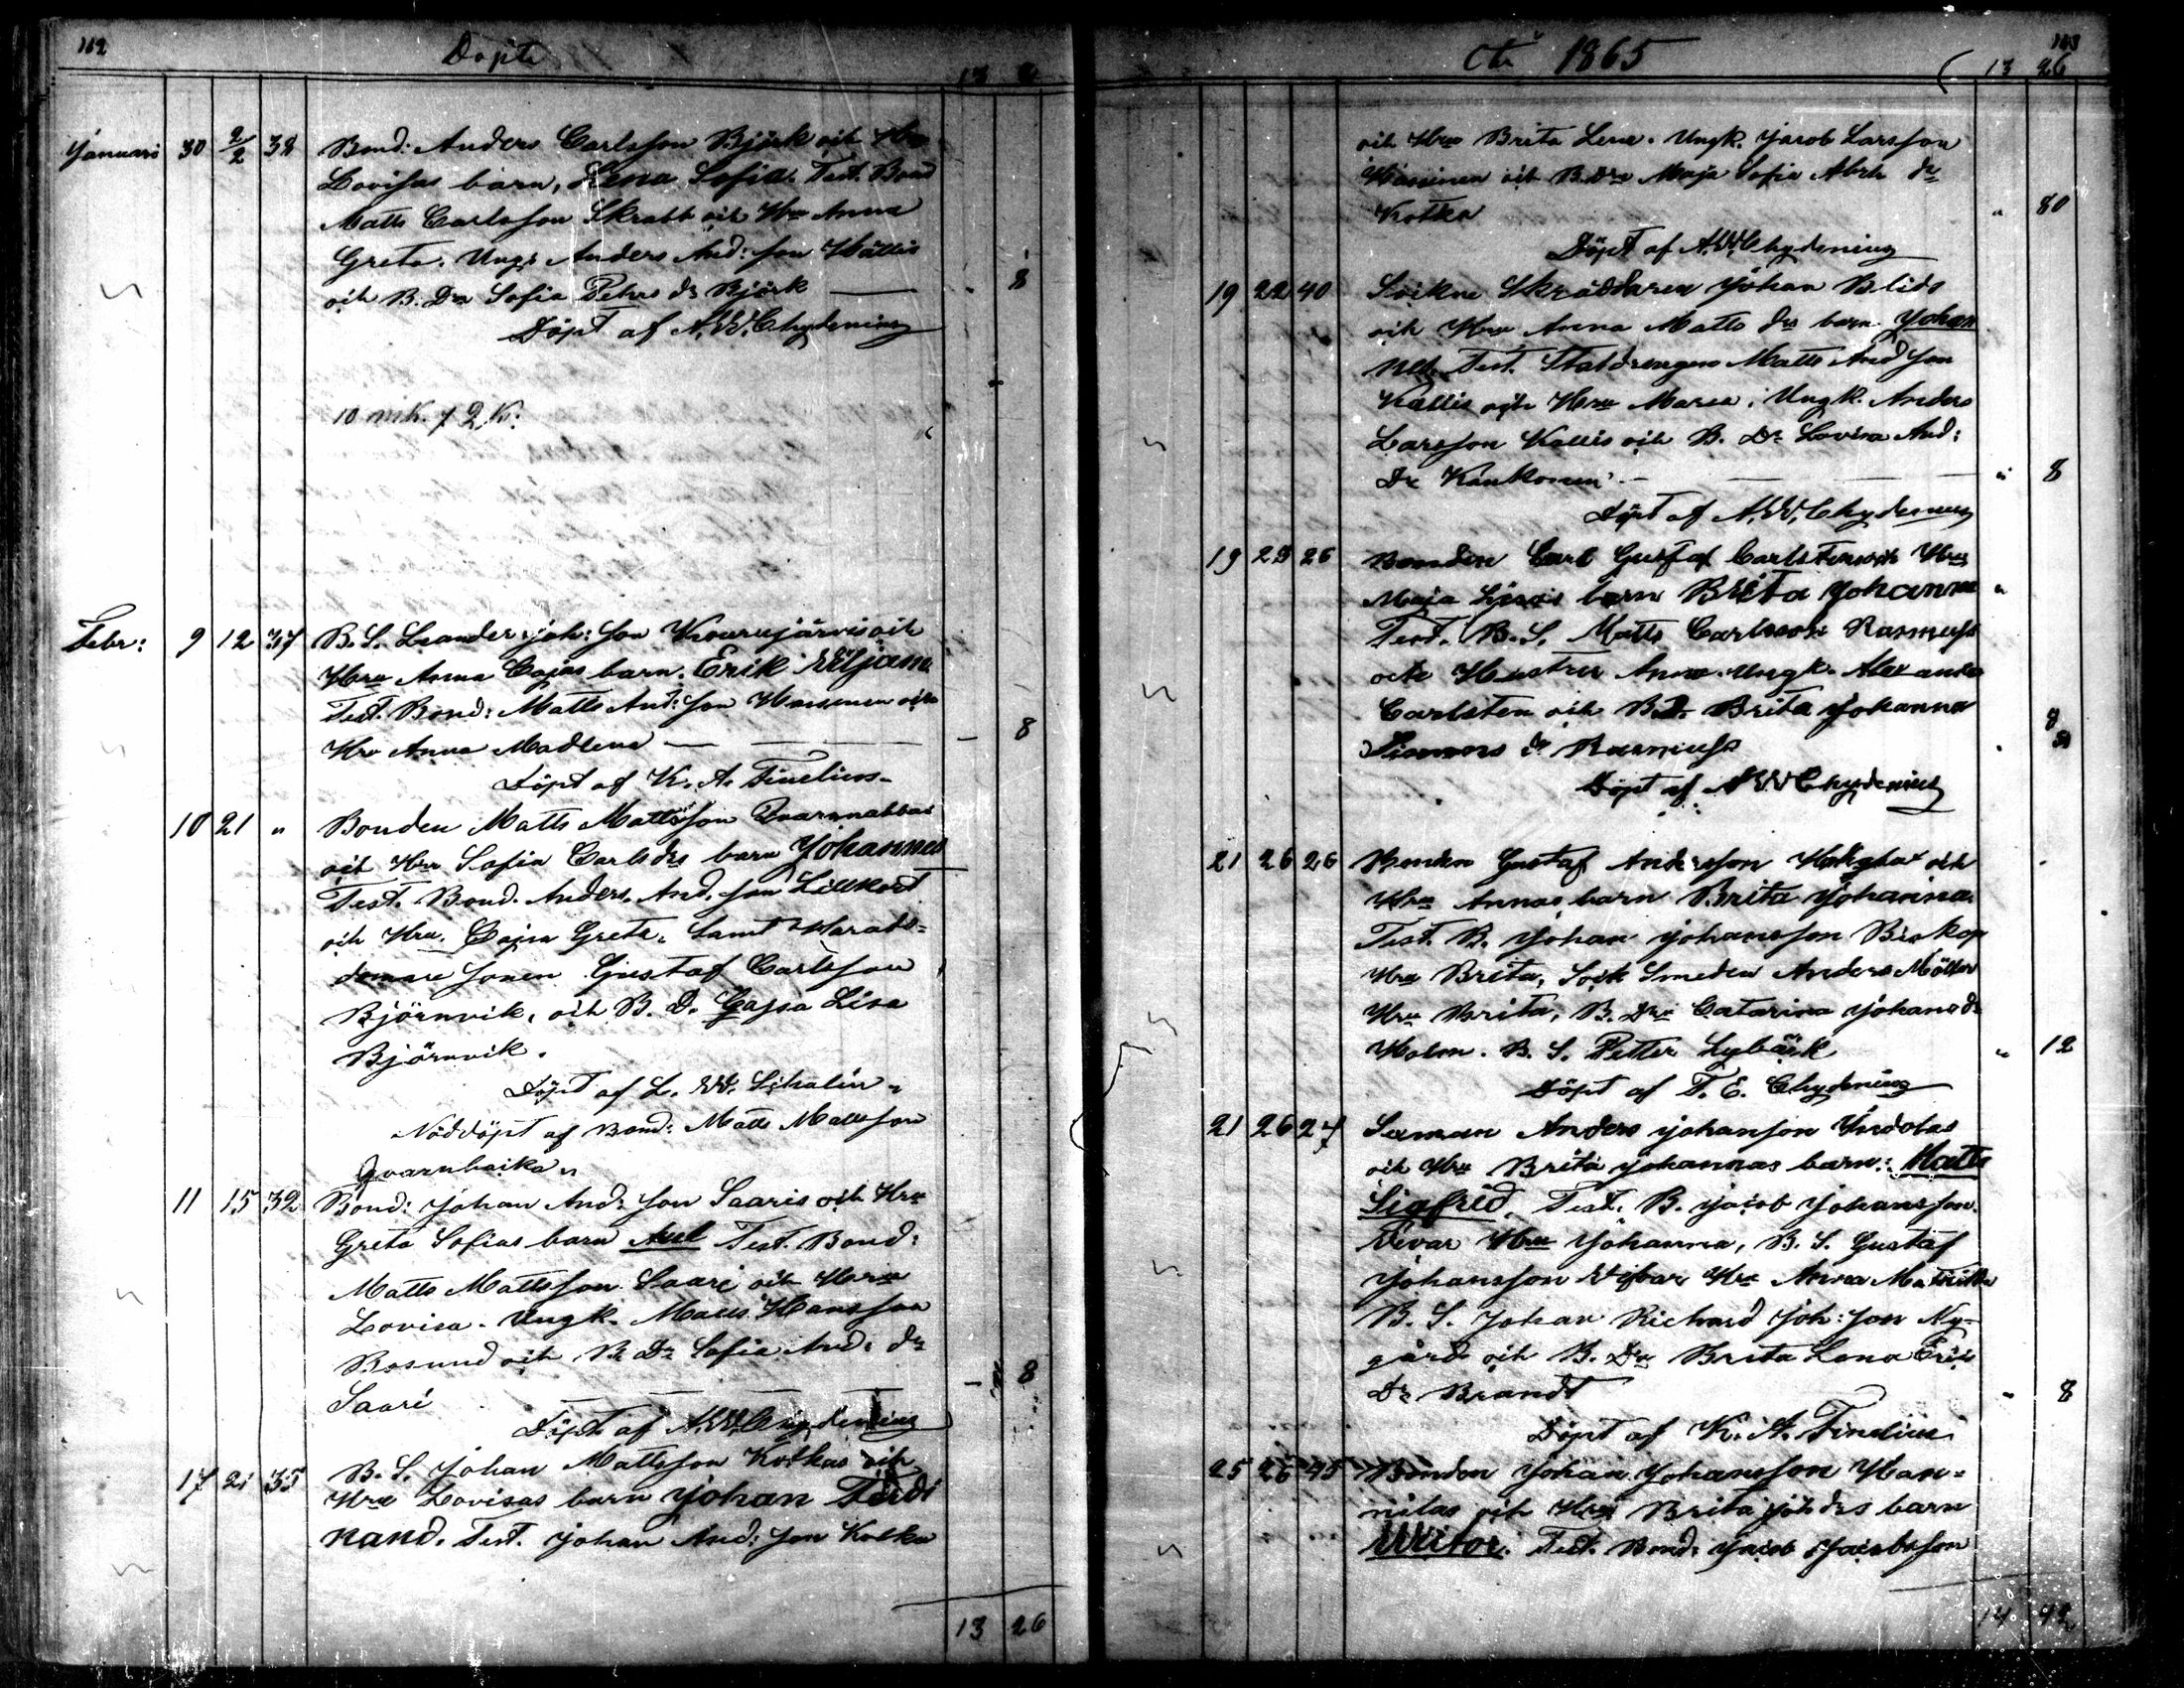 112
Döpte
13
Januari 30 2/2 38 Bond: Anders Carlsson Björk och Hru
Lovisas barn, Lena Sofia. Test. Bond
Matts Carlsson Skrabb och Hru Anna
Greta. Ungk Anders And: son Källis
och B. Dr Sofia Pehrs dr Björk — 8
Döpt af A.W. Chydenius
10 mk. 72 K.
Febr: 9 12 37 B. S. Leander Joh: son Kourujärvis och
Hru Anna Cajas barn. Erik Wiljam
Test. Bond: Matts And: son Hassinen och
Hru Anna Madlena — 8
Döpt af K. A. Finelius
10 21 " Bonden Matts Mattsson Qvarnabbas
och Hru Sofia Carls drs barn Johannes
Test. Bond. Anders And. son Lillkort
och Hru. Cajsa Greta, samt Härads-
domare sonen Gustaf Carlsson
Björnvik, och B. D. Cajsa Lisa
Björnvik.
Döpt af L. W. Schalin
Nöddöpt af Bond: Matts Mattsson
Qvarnbacka
11 15 32 Bond: Johan And: son Saaris och Hru
Greta Sofias barn Axel Test. Bond:
Matts Mattsson Saari och Hru
Lovisa. Ungk. Matts Hansson
Bosund och B. Dr Sofia And: dr
Saari — 8
Döpt af A.W. Chydenius
17 21 35 B. S. Johan Mattsson Kotkas och
Hru Lovisas barn Johan Ferdi
nand. Test. Johan And: son Kotka
13 26
113
År 1865
13 26
och Hru Brita Lena. Ungk. Jacob Larsson
Hassinen och B. Dr Maja Sofia Abrh dr
Kotka " 80
Döpt af A.W. Chydenius
19 22 40 Sockne Skräddaren Johan Blids
och Hru Anna Matts drs barn Johan
nes. Test. Statdrengen Matts And son
Källis och Hru Maria. Ungk. Anders
Larsson Källis och B. Dr Lovisa And:
Dr Kaukonen — " 8
Döpt af A.W. Chydenius
19 23 26 Bonden Carl Gustaf Carlstens och Hru
Maja Lisas barn Brita Johanna
Test. B. S. Matts Carlsson Rasmuss
och Hustru Anna. Ungk. Alexander
Carlsten och B.D. Brita Johanna
Simons dr Rasmuss 8
Döpt af A.W. Chydenius
21 26 26 Bonden Gustaf Andersson och
Hru Annas barn Brita Johanna.
Test. B. Johan Johansson Biskop
Hru Brita, Sock Smeden Anders Möller
Hru Brita, B. Dr Catarina Johans dr
Holm. B. S. Petter Lybäck " 12
Döpt af F. E. Chydenius
21 26 27 Anders Johanson
och Hru Brita Johannas barn: Matts
Sigfrid. Test. B. Jacob Johansson
Hru Johanna, B. S. Gustaf
Johansson Hru Anna
B. S. Johan Richard Joh: son Ny-
gård och B. Dr Brita Lena Eric
Dr Brandt " 8
Döpt af K. A. Finelius
25 26 45 Bonden Johan Johansson Han-
nilas och Hru Brita Joh drs barn
Wictor. Test. Bond: Jacob Jacobsson
14